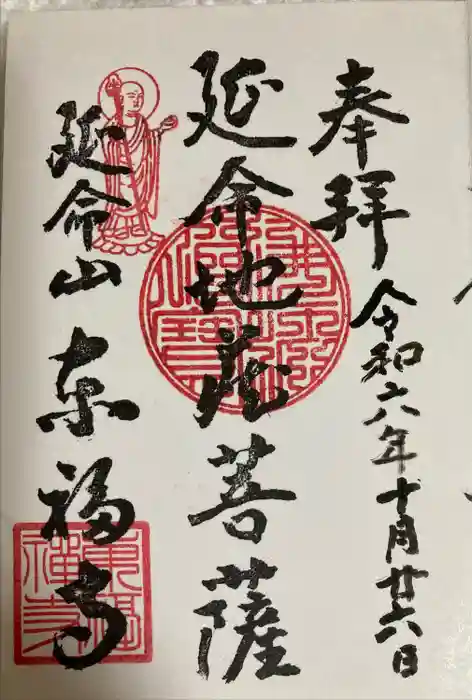 奉拝 令和六年十月廿六日
延命地蔵菩薩
延命山 東福寺